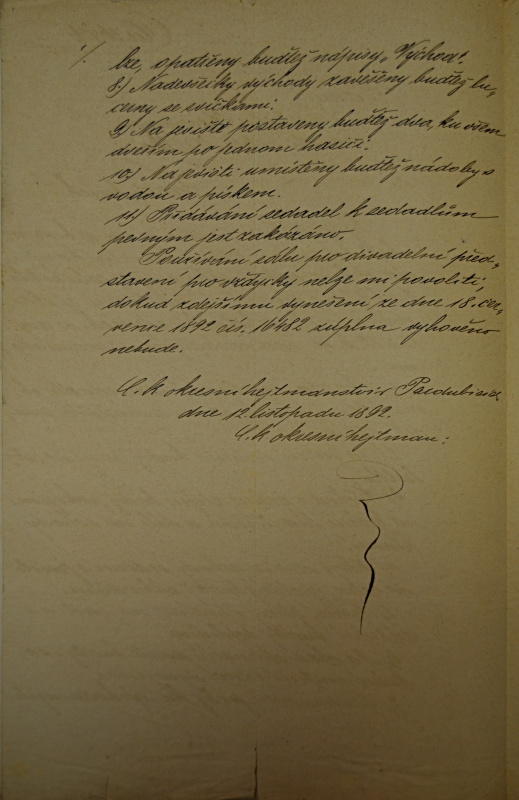 ·/. lze, opatřeny buďtež nápisy „Východ“.
8.) Nade všecky východy zavěšeny buďtež lu-
cerny se svíčkami.
9.) Na jeviště postaveny buďtež dva, ku všem
dveřím po jednom hasiči.
10.) Na jevišti umístěny buďtež nádoby s
vodou a pískem.
11.) Přidávání sedadel k sedadlům
pevným jest zakázáno.
Používání sálu pro divadelní před-
stavení pro vždycky nelze mi povoliti,
dokud zdejšímu vynešení ze dne 18. čer-
vence 1892 čís. 16482 zúplna vyhověno
nebude.
C. k. okresní hejtmanství v Pardubicích
dne 12. listopadu 1892.
C. k. okresní hejtman: